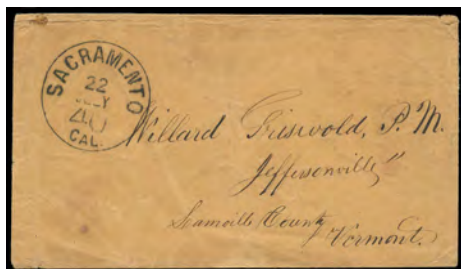 SACRAMENTO
22
JULY
40
CAL.
Willard Griswold, P. M.
Jeffersonville"
Lamoille County
Vermont.